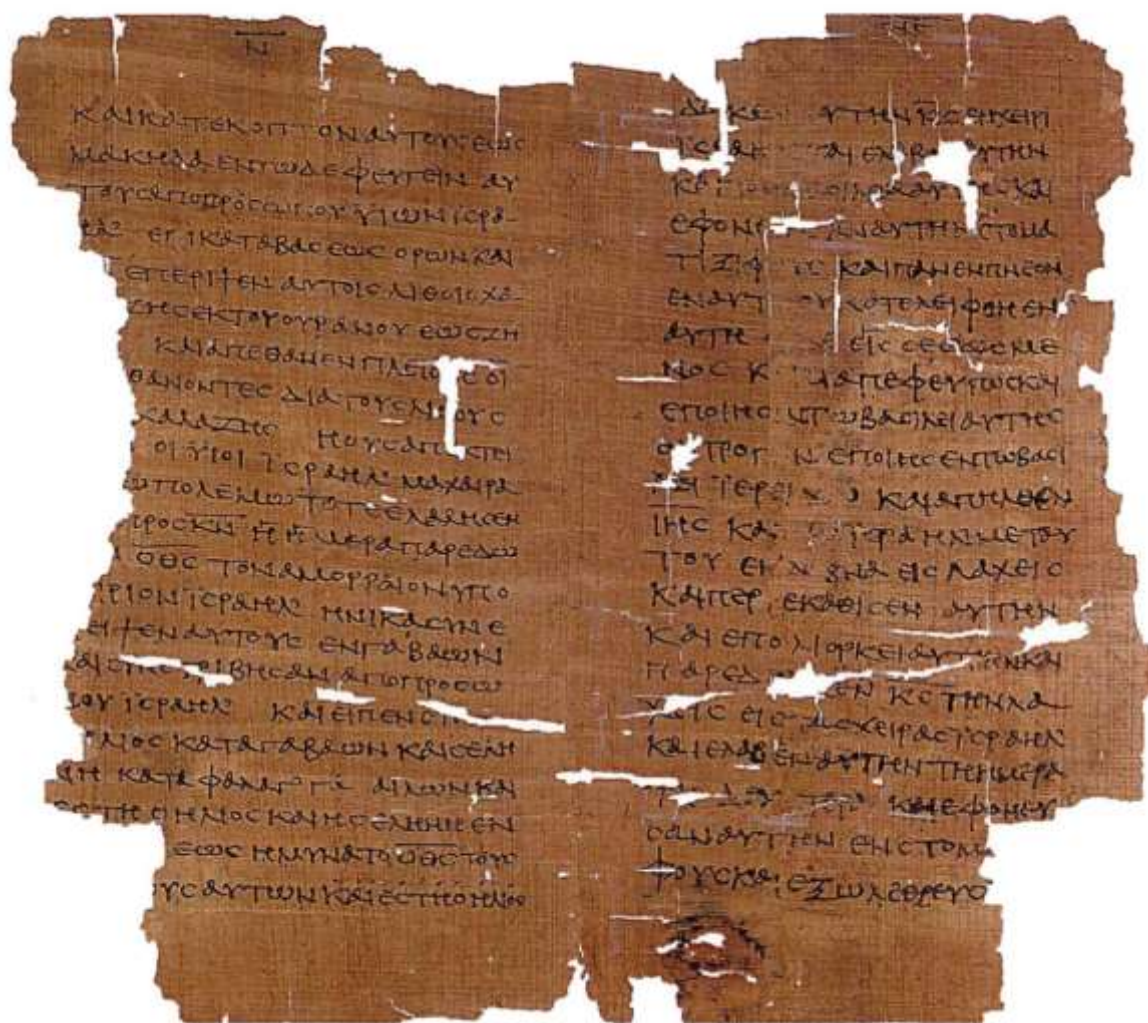 Ν
ΚΑΙΚΑΤΕΚΟΠΤΟΝΑΥΤΟΥΣΕΩΣ
ΜΑΚΗΔΑΕΝΤΩΔΕΦΕΥΓΕΙΝΑΥ
ΤΟΥΣΑΠΟΠΡΟΣΩΠΟΥΥΙΩΝΙΣΡΑ
ΕΠΙΚΑΤΑΒΑΣΕΩΣΟΡΩΝΚΑΙ
ΕΠΕΡΙΨΕΝΑΥΤΟΙΣΛΙΘΟΙΣΧΑ
ΖΗΣΕΚΤΟΥΟΥΡΑΝΟΥΕΩΣΖΗ
ΚΑΙΑΠΕΘΑΝΕΝΠΛΕΙΟΥΣΟΙ
ΘΑΝΟΝΤΕΣΔΙΑΤΟΥΣΛΙΘΟΥΣ
ΧΑΛΑΖΗΣ ΗΟΥΣΑΠΕΚΤΕΙ
ΟΙΥΙΟΙΙΣΡΑΗΛΜΑΧΑΙΡΑ
ΩΠΟΛΕΜΩΤΟΤΕΕΛΑΛΗΣΕΝ
ΠΡΟΣΚΝΗΗΜΕΡΑΠΑΡΕΔΩ
ΟΘΣΤΟΝΑΜΟΡΡΑΙΟΝΥΠΟ
ΡΙΟΝΙΣΡΑΗΛΗΝΙΚΑΣΥΝΕ
ΕΙΨΕΝΑΥΤΟΥΣΕΝΓΑΒΑΩΝ
ΒΗΣΑΝΑΠΟΠΡΟΣΩ
ΟΥΙΣΡΑΗΛ ΚΑΙΕΙΠΕΝ
ΛΙΟΣΚΑΤΑΓΑΒΑΩΝΚΑΙΣΕΛΗ
ΝΗΚΑΤΑΦΑΛΑΓΓΑΑΙΛΩΝΚΑΙ
ΕΣΤΗΟΗΛΙΟΣΚΑΙΗΣΕΛΗΝΗΕΝ
ΕΩΣΗΜΥΝΑΤΟΟΘΣΤΟΥΣ
ΟΥΣΑΥΤΩΝΚΑΙΕΣΤΗΟΗΛΙΟΣ
ΥΤΗΝΚΣΕΙΣΧΕΙΡΑ
ΕΛΑΒΟΝΑΥΤΗΝ
ΚΑΙ
ΕΦΟΝΕ ΑΝΑΥΤΗΝΣΤΟΜΑ
ΤΙΞΙΦΟΥΣ ΚΑΙΠΑΝΕΝΠΝΕΟΝ
ΕΝΑΥΤ ΟΥΚΑΤΕΛΕΙΦΘΗΕΝ
ΑΥΤΗ ΕΙΣΣΕΣΩΣΜΕ
ΝΟΣ Κ ΔΙΑΠΕΦΕΥΓΩΣΚΑΙ
ΕΠΟΙΗΣΑΝΤΩΒΑΣΙΛΕΙΑΥΤΗΣ
ΟΝΤΡΟΠ ΝΕΠΟΙΗΣΕΝΤΩΒΑΣΙ
ΙΕΡΕΙΧΩ ΚΑΙΑΠΗΛΘΕΝ
ΙΗΣ ΚΑΙ ΙΣΡΑΗΛΜΕΤΟΥ
ΤΟΥΕΚΛ ΒΝΑΕΙΣΛΑΧΕΙΣ
ΚΑΙΠΕΡ ΕΚΑΘΙΣΕΝΑΥΤΗΝ
ΚΑΙΕΠΟΛΙΟΡΚΕΙΑΥΤΗΝΚΑΙ
ΠΑΡΕΔ ΚΕΝΚΣΤΗΝΛΑ
ΧΕΙΣΕΙΣΤΑΣΧΕΙΡΑΣΙΣΡΑΗΛ
ΚΑΙΕΛΑΒΕΝΑΥΤΗΝΤΗΗΜΕΡΑ
ΚΑΙΕΦΟΝΕΥ
ΣΑΝΑΥΤΗΝΕΝΣΤΟΜΑ
ΦΟΥΣΚΑΙΕΞΩΛΕΘΡΕΥΣ